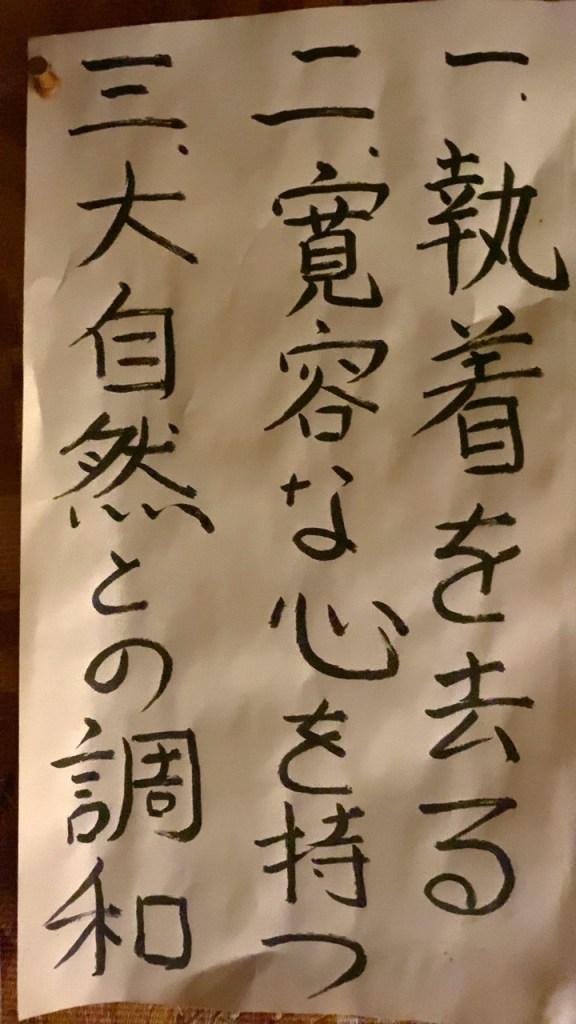 一、執着を去る
二、寛容な心を持つ
三、大自然との調和